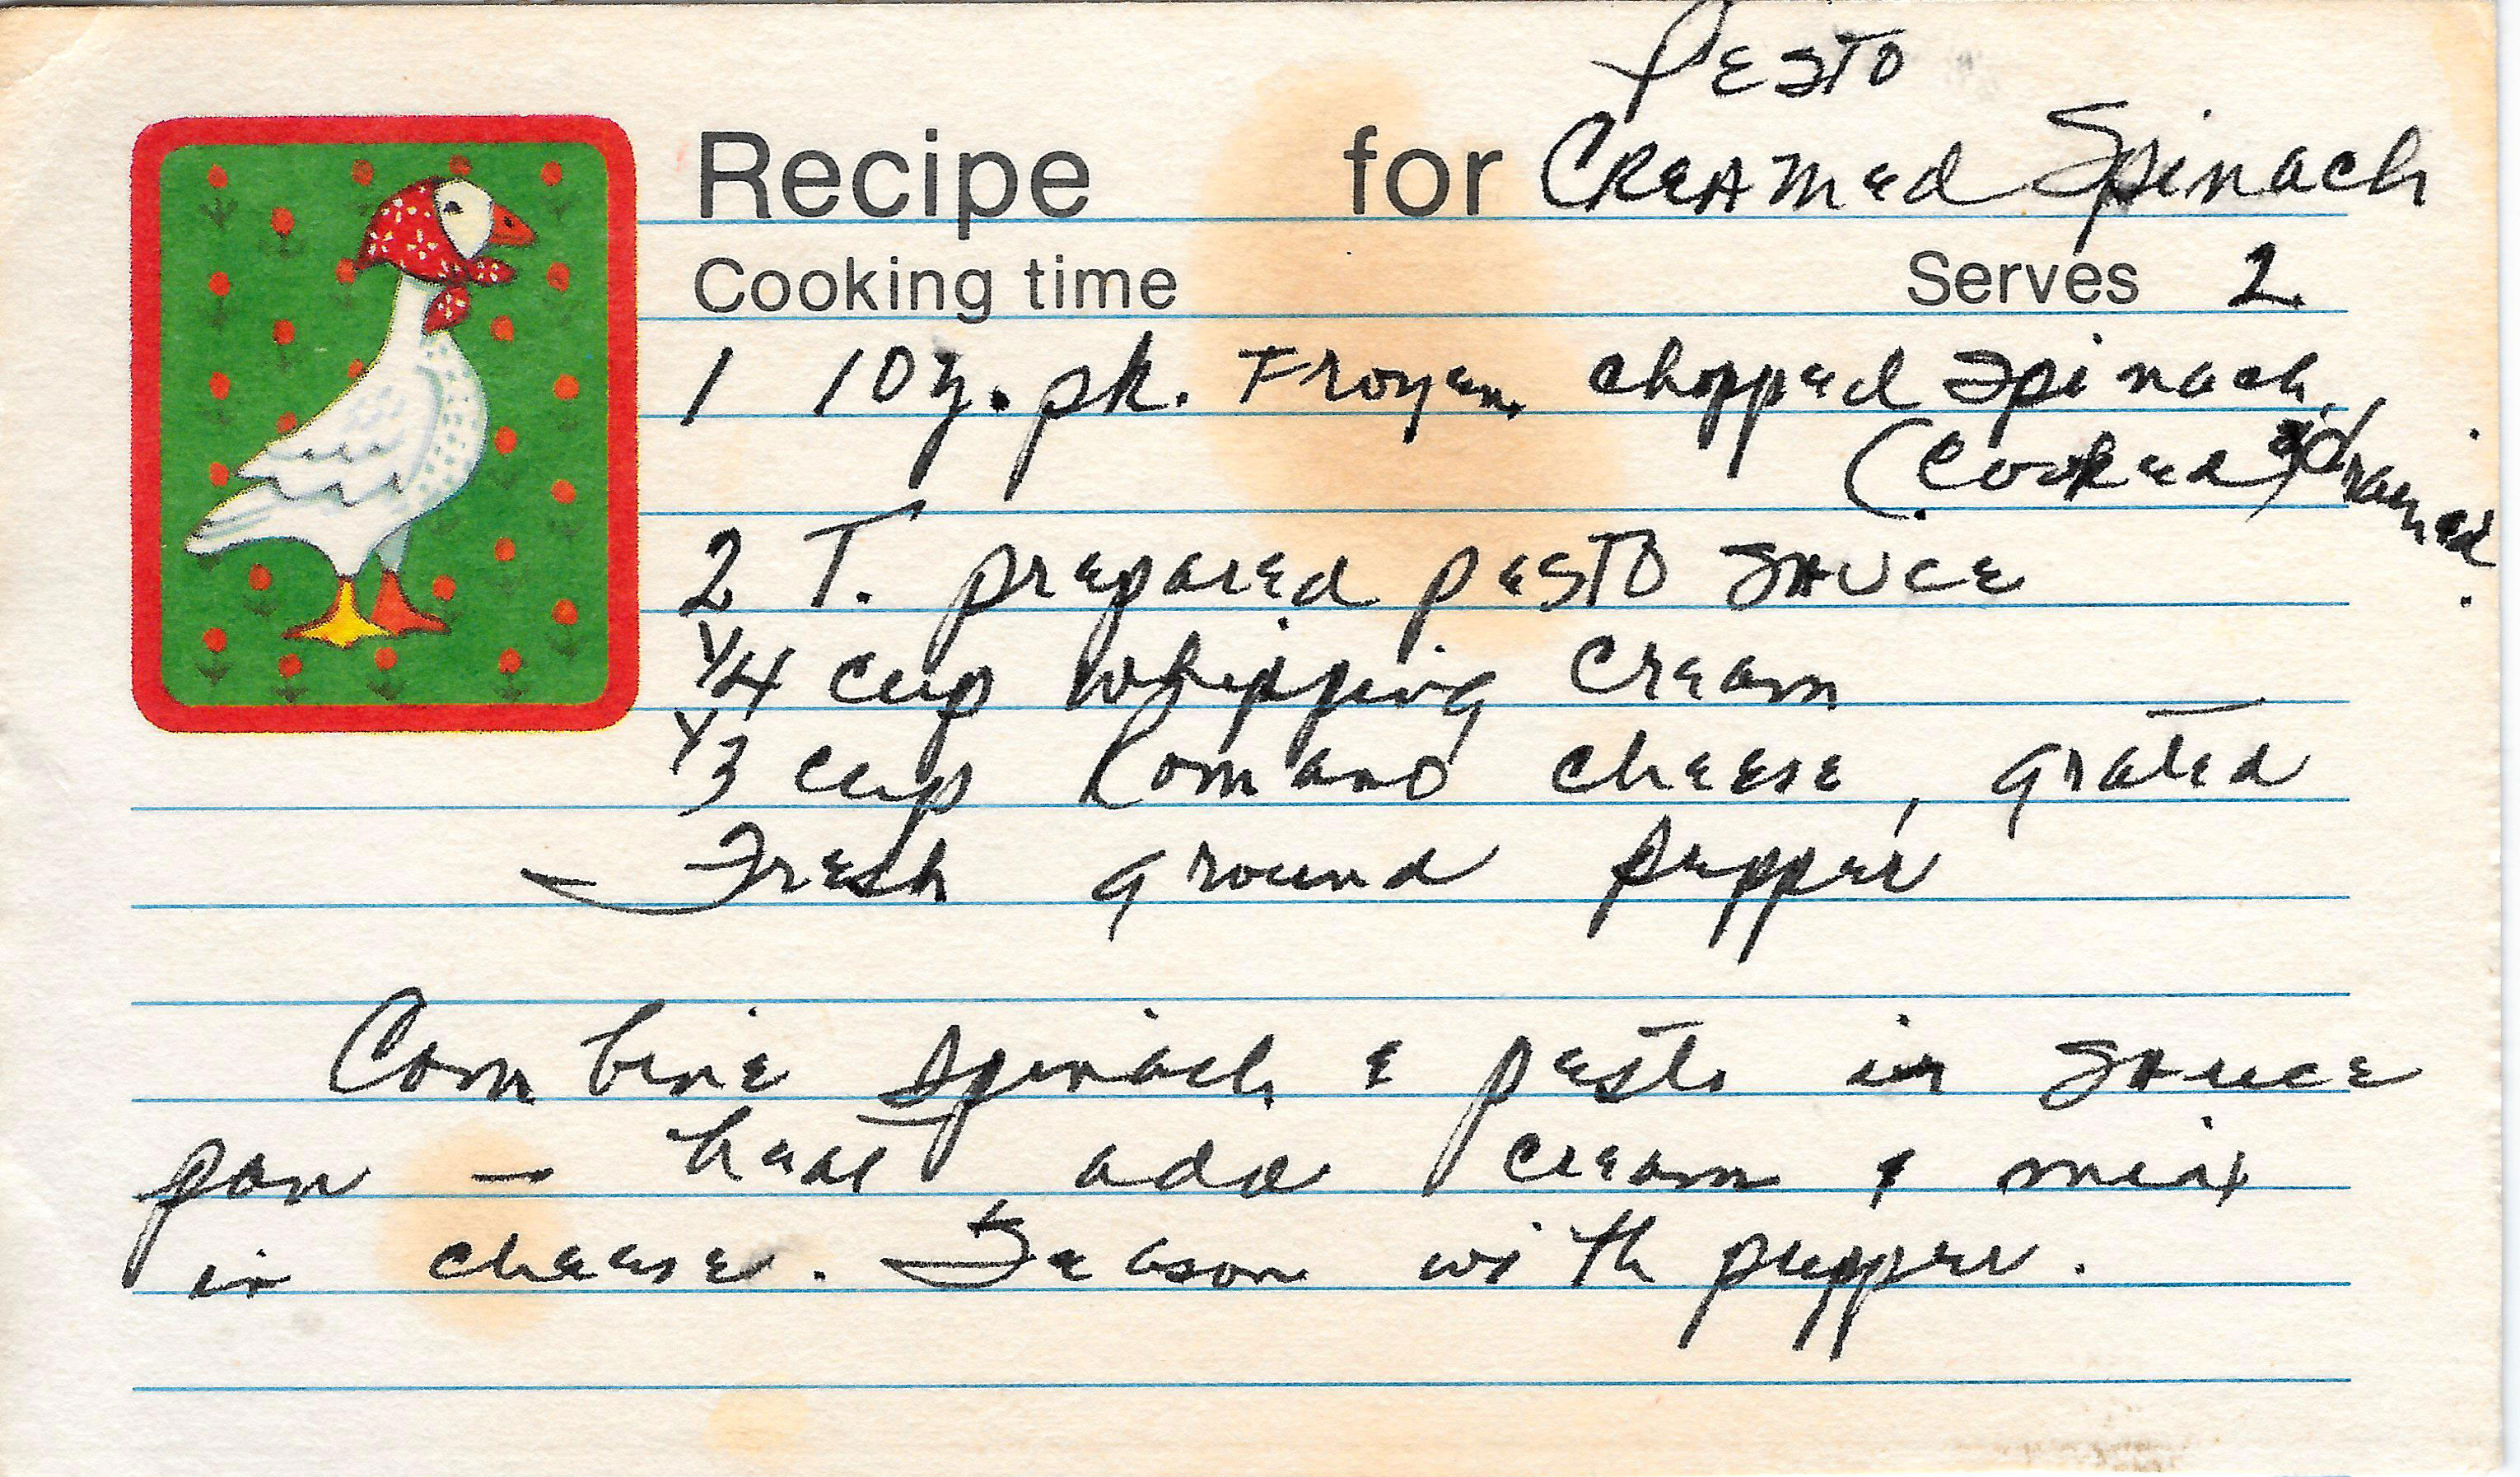 Pesto
Recipe for Creamed Spinach
Cooking time Serves 2
1 10z. pk. Frozen chopped Spinach
(Cooked & drained.
2 T. prepared pesto sauce
1/4 cup whipping cream
1/3 cup Romano cheese, grated
Fresh ground pepper
Combine spinach & pesto in sauce
pan — heat add cream & mix
in cheese. Season with pepper.